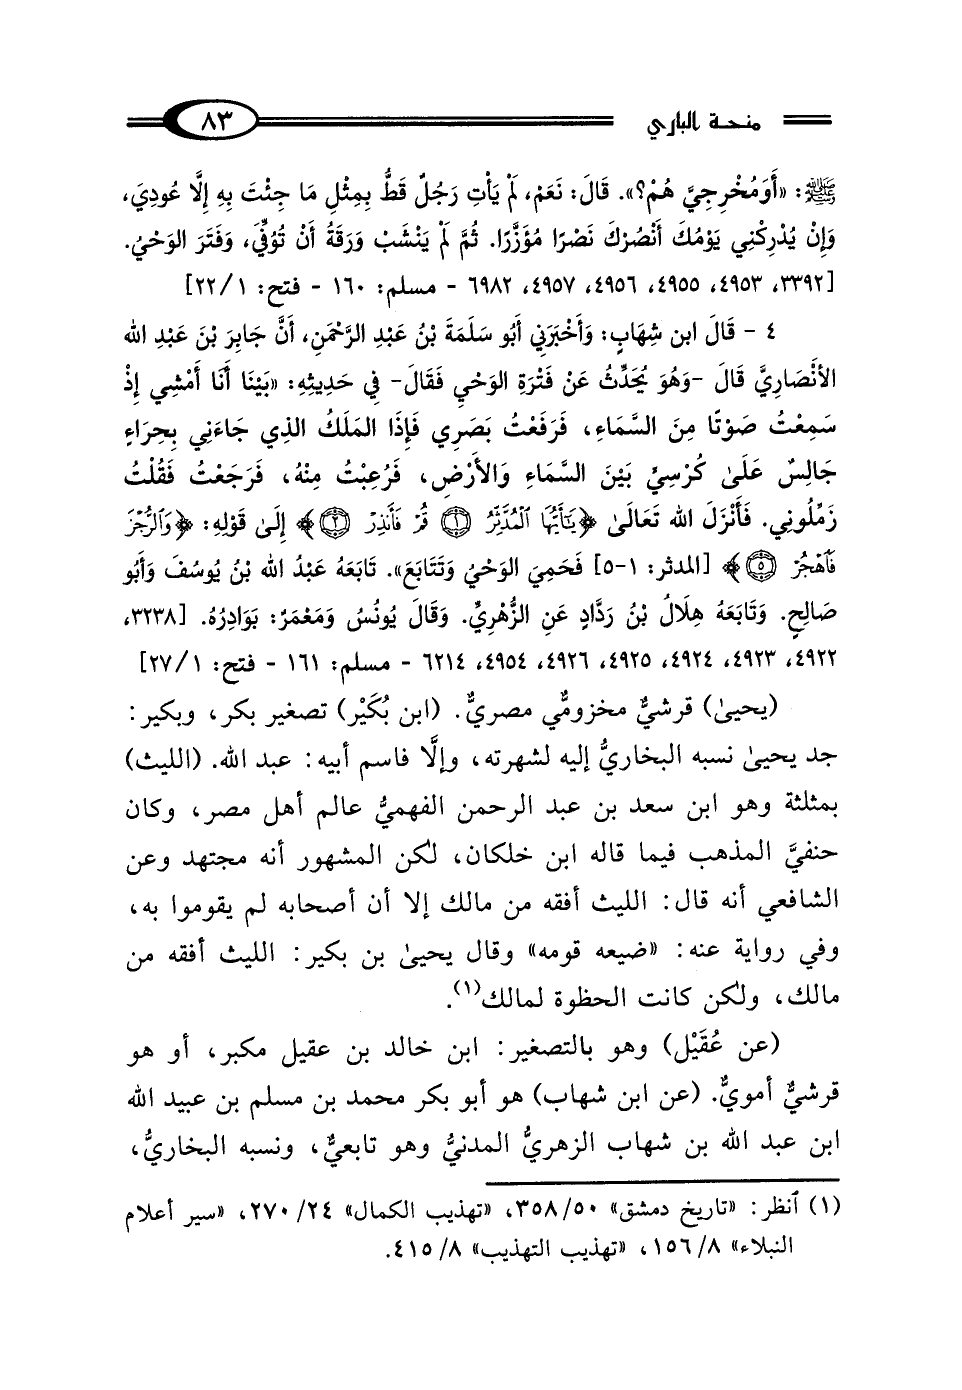 منحة الباري ٨٣
ﷺ: «أَوَمُخْرِجِيَّ هُمْ؟». قَالَ: نَعَمْ، لَمْ يَأْتِ رَجُلٌ قَطُّ بِمِثْلِ مَا جِئْتَ بِهِ إِلَّا عُودِيَ،
وَإِنْ يُدْرِكْنِي يَوْمُكَ أَنْصُرْكَ نَصْرًا مُؤَزَّرًا. ثُمَّ لَمْ يَنْشَبْ وَرَقَةُ أَنْ تُوُفِّيَ، وَفَتَرَ الوَحْيُ.
[٣٣٩٢، ٤٩٥٣، ٤٩٥٥، ٤٩٥٦، ٤٩٥٧، ٦٩٨٢ - مسلم: ١٦٠ - فتح: ٢٢/١]
٤ - قَالَ ابن شِهَابٍ: وَأَخْبَرَنِي أَبُو سَلَمَةَ بْنُ عَبْدِ الرَّحْمَنِ، أَنَّ جَابِرَ بْنَ عَبْدِ الله
الأَنْصَارِيَّ قَالَ -وَهُوَ يُحَدِّثُ عَنْ فَتْرَةِ الوَحْيِ فَقَالَ- فِي حَدِيثِهِ: «بَيْنَا أَنَا أَمْشِي إِذْ
سَمِعْتُ صَوْتًا مِنَ السَّمَاءِ، فَرَفَعْتُ بَصَرِي فَإِذَا المَلَكُ الذِي جَاءَنِي بِحِرَاءٍ
جَالِسٌ عَلَىٰ كُرْسِيٍّ بَيْنَ السَّمَاءِ وَالأَرْضِ، فَرُعِبْتُ مِنْهُ، فَرَجَعْتُ فَقُلْتُ
زَمِّلُونِي. فَأَنْزَلَ الله تَعَالَىٰ ﴿يَٰٓأَيُّهَا ٱلْمُدَّثِّرُ ۝١ قُمْ فَأَنذِرْ ۝٢﴾ إِلَىٰ قَوْلِهِ: ﴿وَٱلرُّجْزَ
فَٱهْجُرْ ۝٥﴾ [المدثر: ١-٥] فَحَمِيَ الوَحْيُ وَتَتَابَعَ». تَابَعَهُ عَبْدُ الله بْنُ يُوسُفَ وَأَبُو
صَالِحٍ. وَتَابَعَهُ هِلَالُ بْنُ رَدَّادٍ عَنِ الزُّهْرِيِّ. وَقَالَ يُونُسُ وَمَعْمَرٌ: بَوَادِرُهُ. [٣٢٣٨،
٤٩٢٢، ٤٩٢٣، ٤٩٢٤، ٤٩٢٥، ٤٩٢٦، ٤٩٥٤، ٦٢١٤ - مسلم: ١٦١ - فتح: ٢٧/١]
(يحيىٰ) قرشيٌّ مخزوميٌّ مصريٌّ. (ابن بُكَيْر) تصغير بكر، وبكير:
جد يحيىٰ نسبه البخاريُّ إليه لشهرته، وإلَّا فاسم أبيه: عبد الله. (الليث)
بمثلثة وهو ابن سعد بن عبد الرحمن الفهميُّ عالم أهل مصر، وكان
حنفيَّ المذهب فيما قاله ابن خلكان، لكن المشهور أنه مجتهد وعن
الشافعي أنه قال: الليث أفقه من مالك إلا أن أصحابه لم يقوموا به،
وفي رواية عنه: «ضيعه قومه» وقال يحيىٰ بن بكير: الليث أفقه من
مالك، ولكن كانت الحظوة لمالك(١).
(عن عُقَيْل) وهو بالتصغير: ابن خالد بن عقيل مكبر، أو هو
قرشيٌّ أمويٌّ. (عن ابن شهاب) هو أبو بكر محمد بن مسلم بن عبيد الله
ابن عبد الله بن شهاب الزهريُّ المدنيُّ وهو تابعيٌّ، ونسبه البخاريُّ،
(١) ٱنظر: «تاريخ دمشق» ٣٥٨/٥٠، «تهذيب الكمال» ٢٧٠/٢٤، «سير أعلام
النبلاء» ١٥٦/٨، «تهذيب التهذيب» ٤١٥/٨.